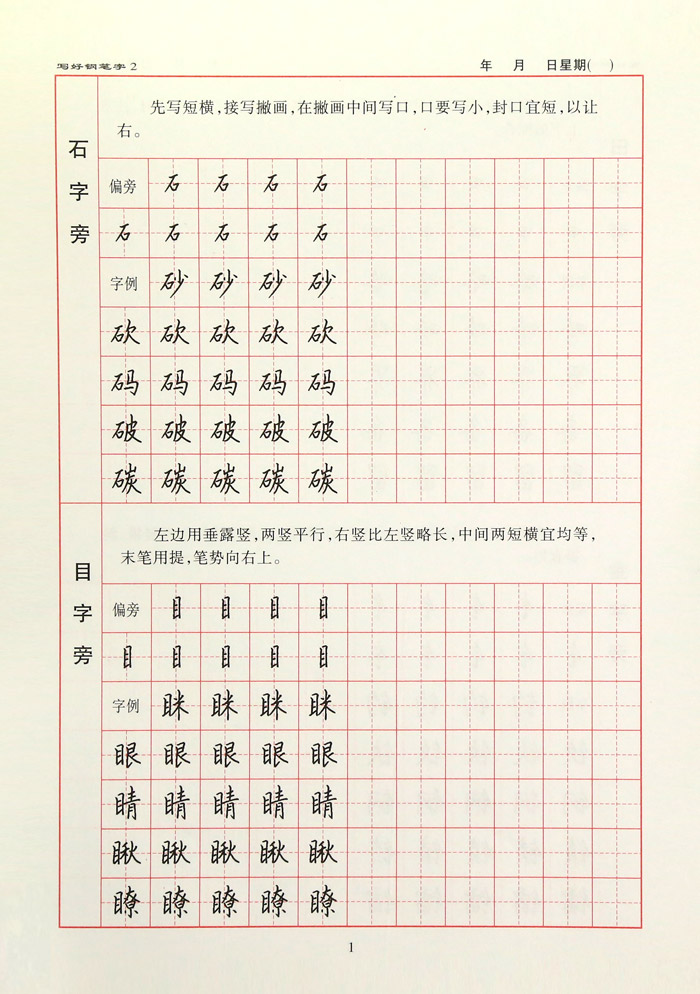 写好钢笔字 2
年 月 日星期( )
石字旁
先写短横,接写撇画,在撇画中间写口,口要写小,封口宜短,以让
右。
偏旁 石 石 石 石
石 石 石 石 石
字例 砂 砂 砂 砂
砍 砍 砍 砍 砍
码 码 码 码 码
破 破 破 破 破
碳 碳 碳 碳 碳
目字旁
左边用垂露竖,两竖平行,右竖比左竖略长,中间两短横宜均等,
末笔用提,笔势向右上。
偏旁 目 目 目 目
目 目 目 目 目
字例 眯 眯 眯 眯
眼 眼 眼 眼 眼
睛 睛 睛 睛 睛
瞅 瞅 瞅 瞅 瞅
瞭 瞭 瞭 瞭 瞭
1